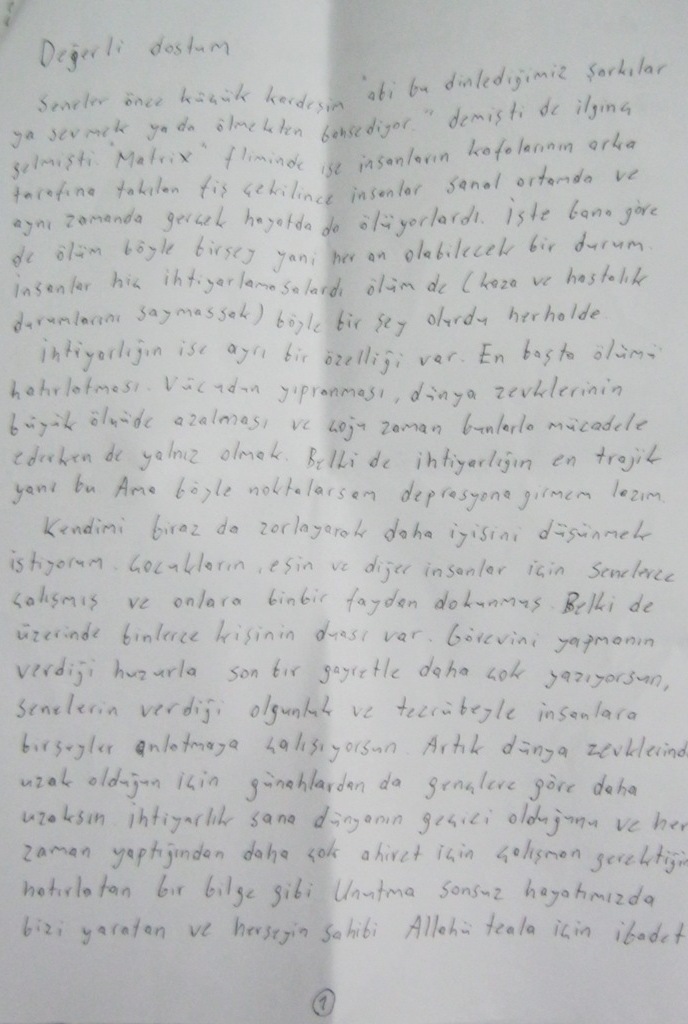 Değerli dostum
Seneler önce küçük kardeşim "abi bu dinlediğimiz şarkılar
ya sevmek ya da ölmekten bahsediyor." demişti de ilginç
gelmişti. "Matrix" fliminde ise insanların kafalarının arka
tarafına takılan fiş çekilince insanlar sanal ortamda ve
aynı zamanda gerçek hayatda da ölüyorlardı. İşte bana göre
de ölüm böyle birşey yani her an olabilecek bir durum.
İnsanlar hiç ihtiyarlamasalardı ölüm de (kaza ve hastalık
durumlarını saymassak) böyle bir şey olurdu herholde.
İhtiyarlığın ise ayrı bir özelliği var. En başta ölümü
hatırlatması. Vücudun yıpranması, dünya zevklerinin
büyük ölçüde azalması ve çoğu zaman bunlarla mücadele
ederken de yalnız olmak. Belki de ihtiyarlığın en trajik
yanı bu Ama böyle noktalarsam depresyona girmem lazım.
Kendimi biraz da zorlayarak daha iyisini düşünmek
istiyorum. Çocukların, eşin ve diğer insanlar için senelerce
çalışmış ve onlara binbir faydan dokunmuş. Belki de
üzerinde binlerce kişinin duası var. Görevini yapmanın
verdiği huzurla son bir gayretle daha çok yazıyorsun,
senelerin verdiği olgunluk ve tecrübeyle insanlara
birşeyler anlatmaya çalışıyorsun. Artık dünya zevklerind
uzak olduğun için günahlardan da gençlere göre daha
uzaksın. İhtiyarlık sana dünyanın geçici olduğunu ve her
zaman yaptığından daha çok ahiret için çalışman gerektiğin
hatırlatan bir bilge gibi Unutma sonsuz hayatımızda
bizi yaratan ve herşeyin sahibi Allahü teala için ibadet
1